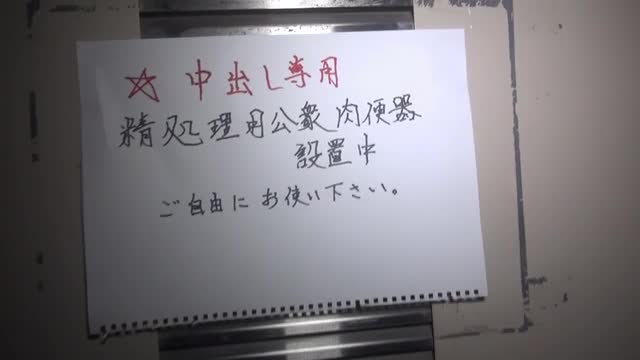 ☆ 中出し専用
精処理用公衆肉便器
設置中
ご自由にお使い下さい。